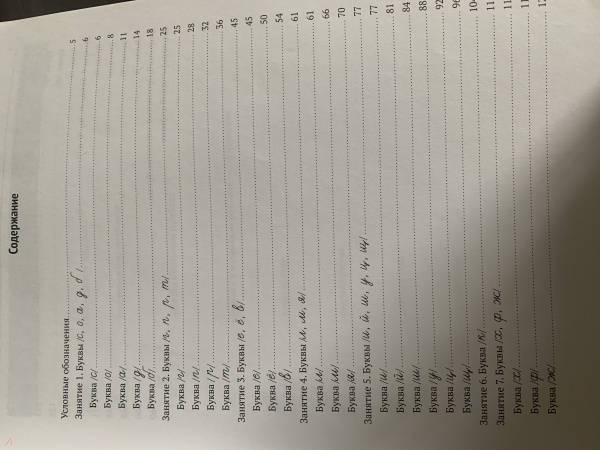 Содержание
Условные обозначения 5
Занятие 1. Буквы /с, о, а, д, б/ 6
Буква /с/ 6
Буква /о/ 8
Буква /а/ 11
Буква /д/ 14
Буква /б/ 18
Занятие 2. Буквы /г, п, р, т/ 25
Буква /г/ 25
Буква /п/ 28
Буква /р/ 32
Буква /т/ 36
Занятие 3. Буквы /е, ё, в/ 45
Буква /е/ 45
Буква /ё/ 50
Буква /в/ 54
Занятие 4. Буквы /л, м, я/ 61
Буква /л/ 61
Буква /м/ 66
Буква /я/ 70
Занятие 5. Буквы /и, й, ш, у, ц, щ/ 77
Буква /и/ 77
Буква /й/ 81
Буква /ш/ 84
Буква /у/ 88
Буква /ц/ 92
Буква /щ/ 96
Занятие 6. Буква /к/
Занятие 7. Буквы /х, ф, ж/
Буква /х/
Буква /ф/
Буква /ж/